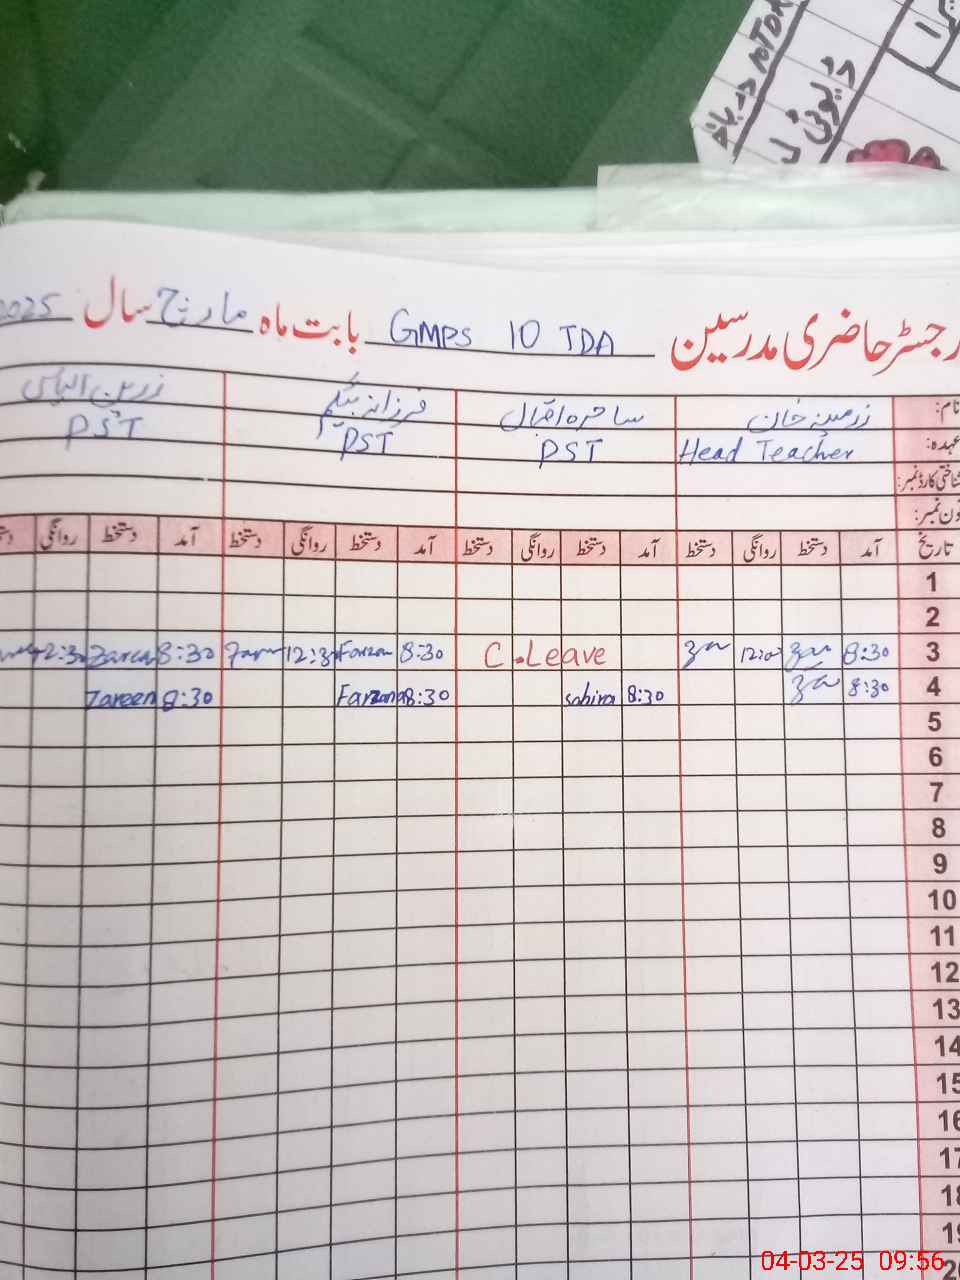 ڈیوٹی
رجسٹر حاضری مدرسین GMPS 10 TDA بابت ماہ مارچ سال 2025
نام: زرمینہ خان ساحرہ اقبال فرزانہ بیگم زرین الیاس
عہدہ: Head Teacher PST PST PST
شناختی کارڈ نمبر:
فون نمبر:
تاریخ آمد دستخط روانگی دستخط آمد دستخط روانگی دستخط آمد دستخط روانگی دستخط آمد دستخط روانگی
1
2
3 8:30 12:00 C.Leave 8:30 Farzan 12:30 8:30 Zareen 12:30
4 8:30 8:30 sahira 8:30 Farzana 8:30 Zareen
5
6
7
8
9
10
11
12
13
14
15
16
17
18
19
20
04-03-25 09:56